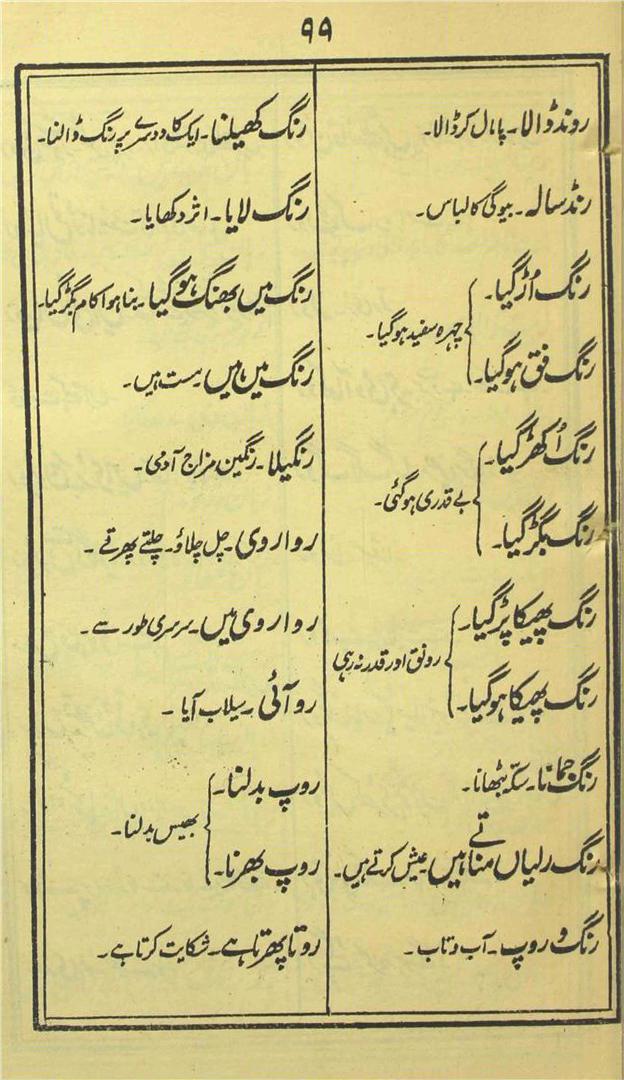 ۹۹
روند ڈالا۔ پامال کر ڈالا۔
رنڈسالہ۔ بیوگی کا لباس۔
رنگ اُڑ گیا۔
رنگ فق ہو گیا۔
چہرہ سفید ہو گیا۔
رنگ اُکھڑ گیا۔
رنگ بگڑ گیا۔
بے قدری ہو گئی۔
رنگ پھیکا پڑ گیا۔
رنگ پھیکا ہو گیا۔
رونق اور قدر نہ رہی
رنگ جمانا۔ سکہ بٹھانا۔
رنگ رلیاں مناتے ہیں۔ عیش کرتے ہیں۔
رنگ و روپ۔ آب و تاب۔
رنگ کھیلنا۔ ایک کا دوسرے پر رنگ ڈالنا۔
رنگ لایا۔ اثر دکھایا۔
رنگ میں بھنگ ہو گیا۔ بنا ہوا کام بگڑ گیا۔
رنگ میں ہیں مست ہیں۔
رنگیلا۔ رنگین مزاج آدمی۔
رواروی۔ چل چلاؤ۔ چلتے پھرتے۔
رواروی میں۔ سرسری طور سے۔
رو آئی۔ سیلاب آیا۔
روپ بدلنا۔
روپ بھرنا۔
بھیس بدلنا۔
روتا پھرتا ہے۔ شکایت کرتا ہے۔